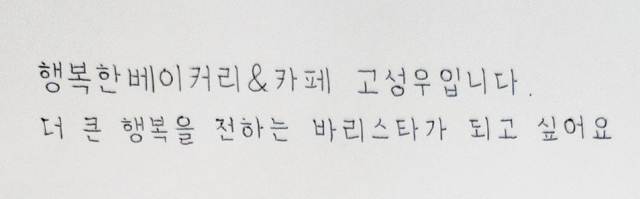 행복한베이커리&카페 고성우입니다.
더 큰 행복을 전하는 바리스타가 되고 싶어요